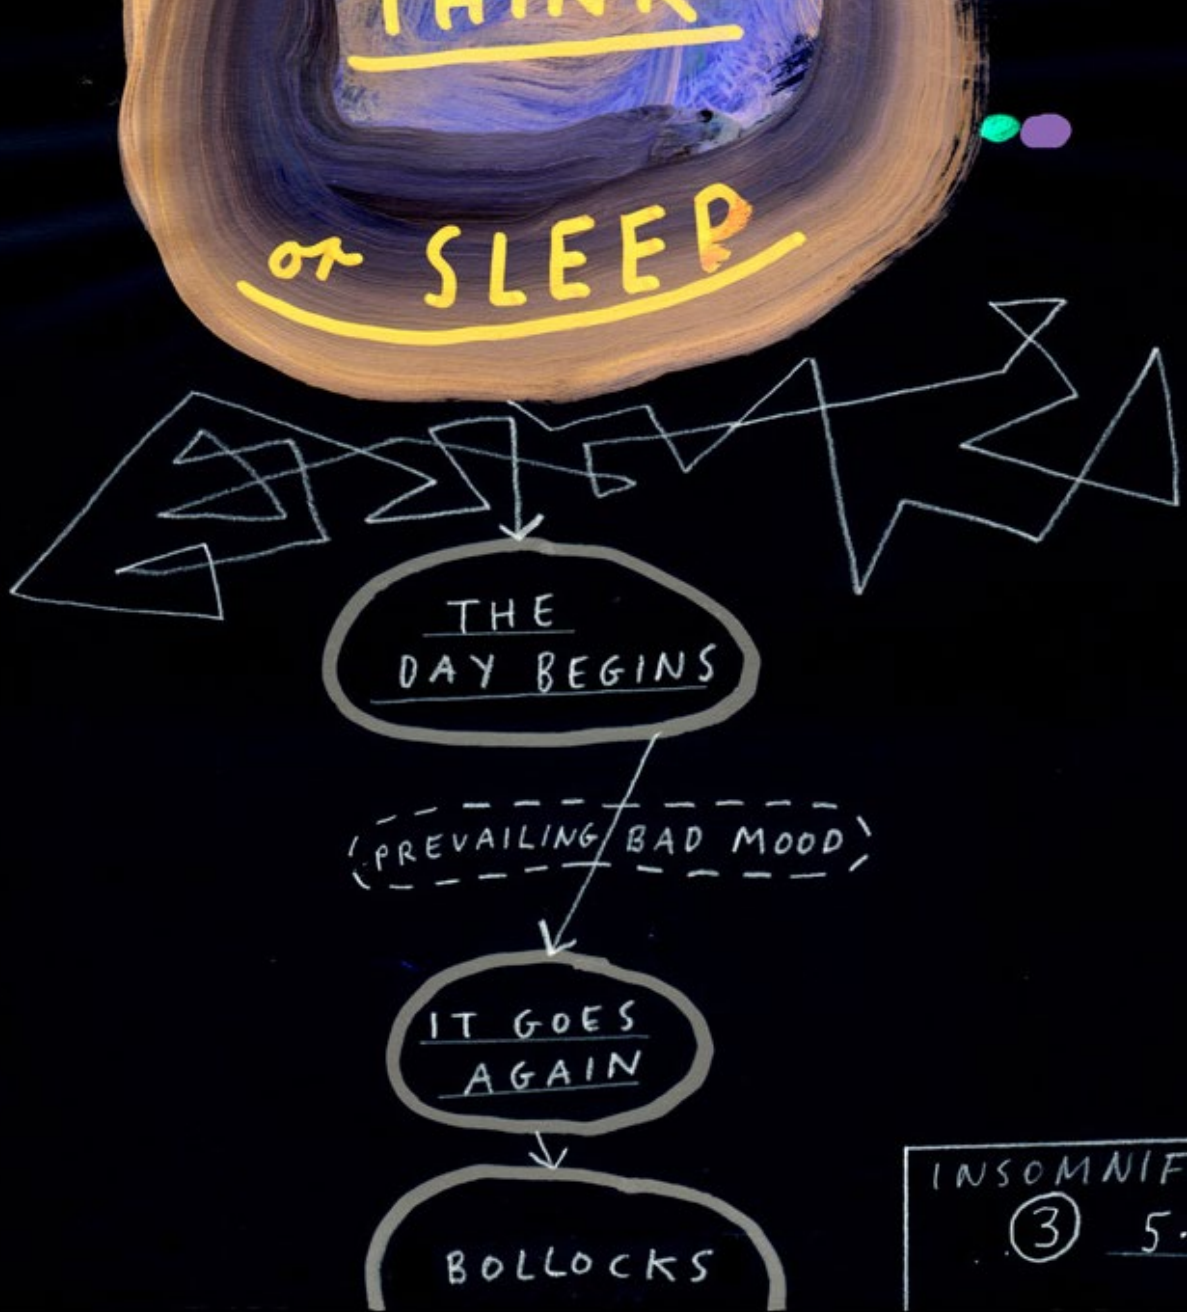 THINK
or SLEEP
THE
DAY BEGINS
PREVAILING BAD MOOD
IT GOES
AGAIN
BOLLOCKS
INSOMNIF
3 5.